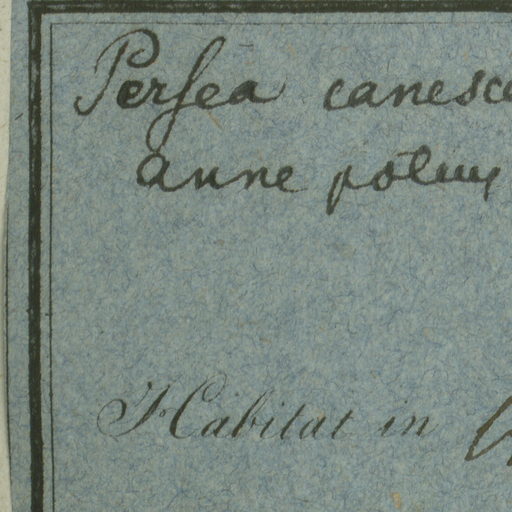 Persea canesce
anne potius
Habitat in